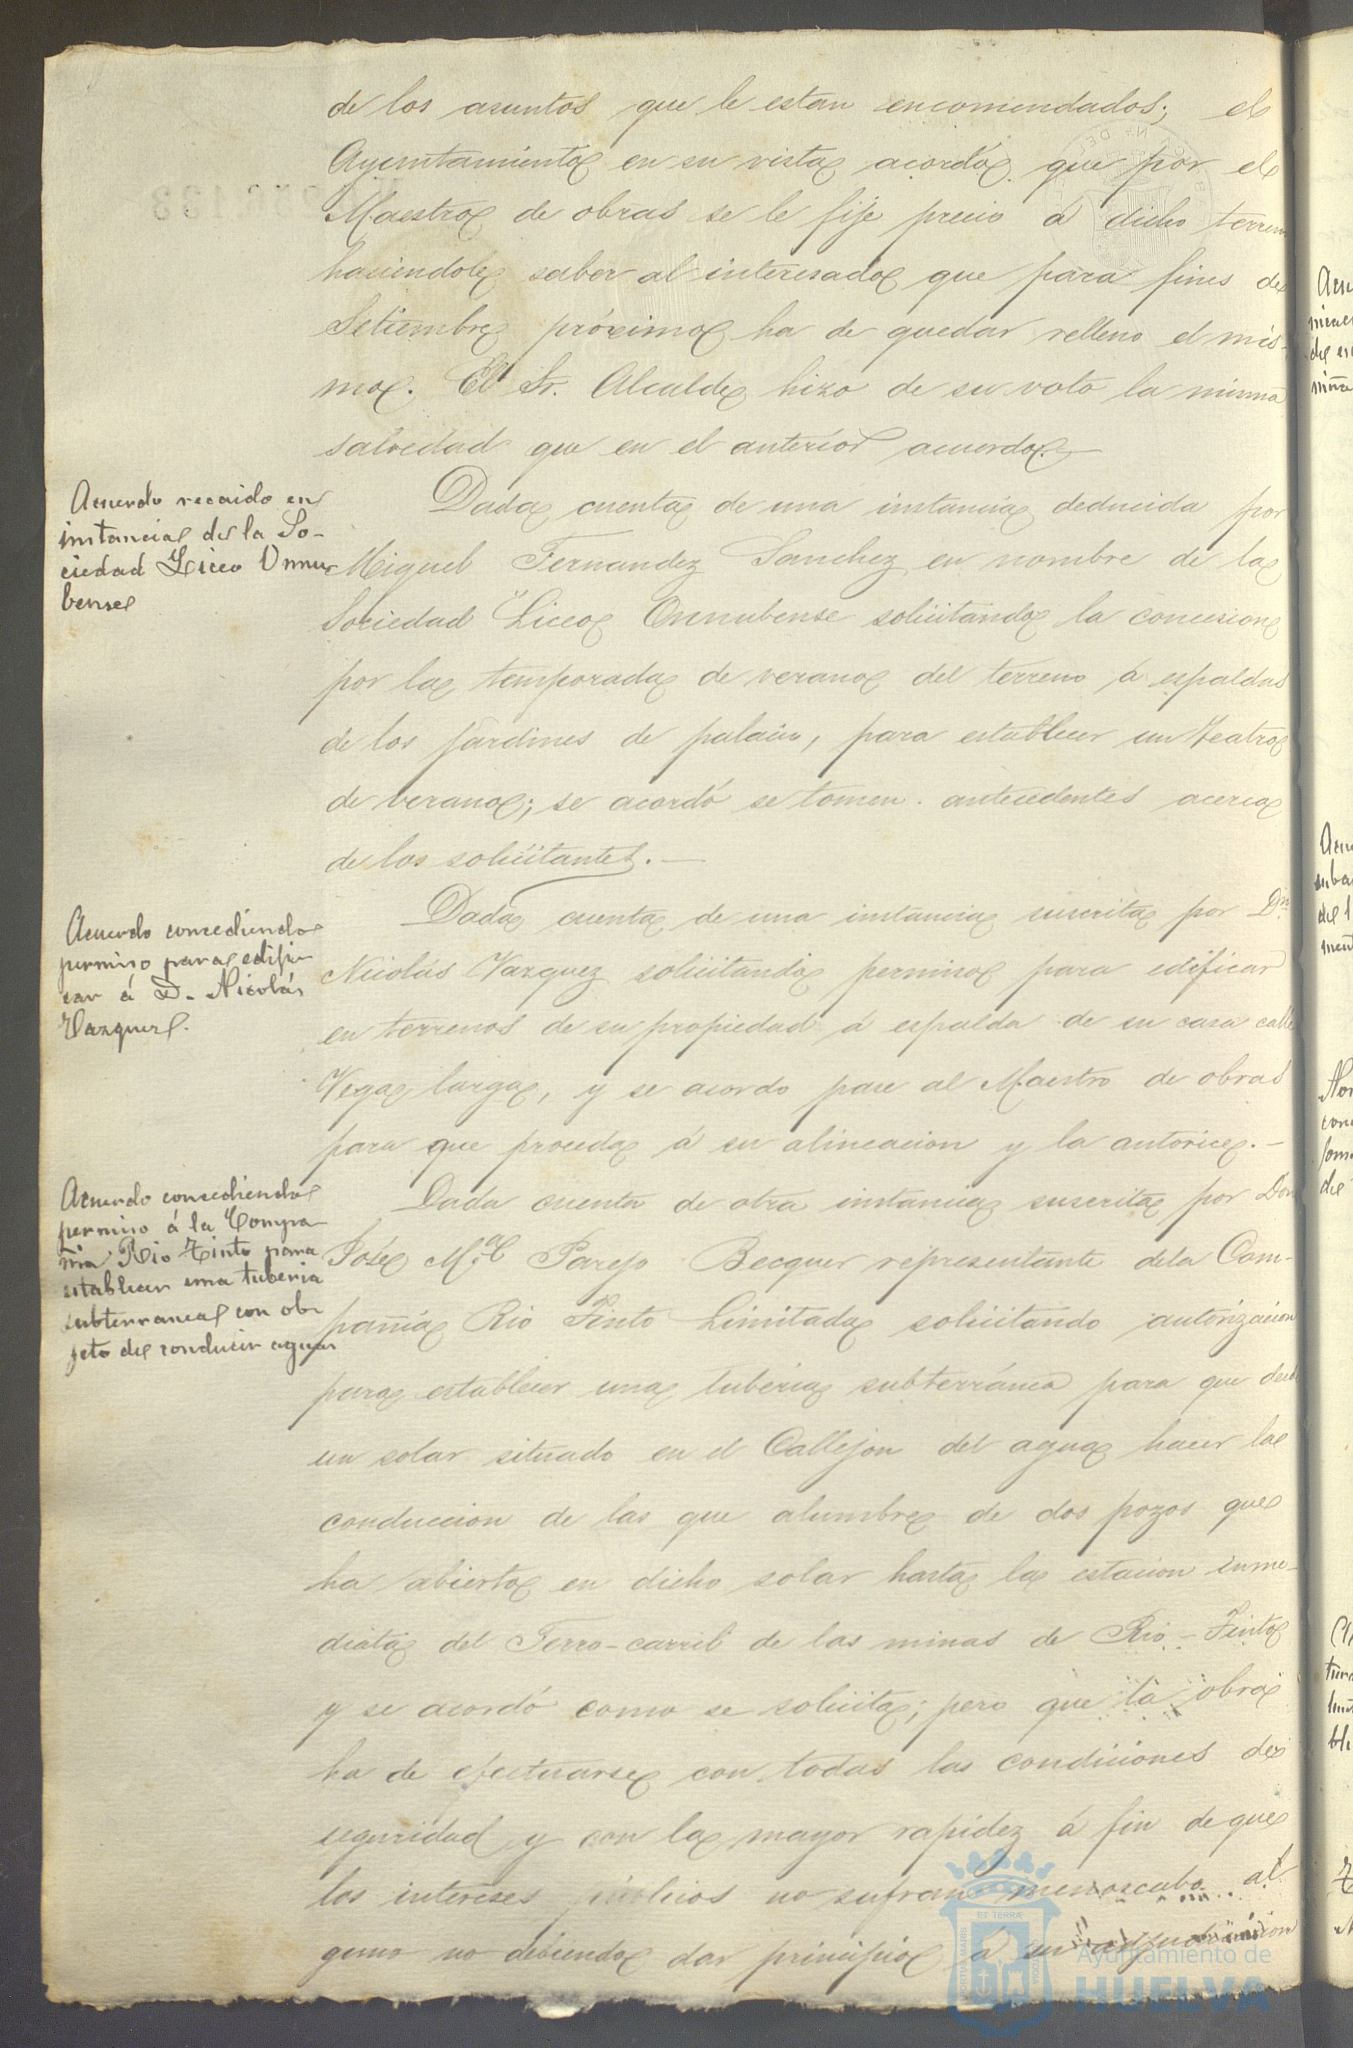 de los asuntos que le estan encomendados; el
Ayuntamiento en su vista acordó que por el
Maestro de obras se le fije precio á dicho terreno
hasiendole saber al interesado que para fines de
Setiembre próximo ha de quedar relleno el mis-
mo. El Sr. Alcalde hizo de su voto la misma
salvedad que en el anterior acuerdo.
Acuerdo recaido en
instancia de la So-
ciedad Liceo Onnu-
bense
Dada cuenta de una instancia deducida por
Miguel Fernandez Sanchez en nombre de la
Sociedad "Liceo Onnubense solicitando la concesion
por la temporada de verano del terreno á espaldas
de los jardines de palacio, para establecer un teatro
de verano; se acordó se tomen antecedentes acerca
de los solicitantes.
Acuerdo concediendo
permiso para edifi-
car á D. Nicolás
Vazquez.
Dada cuenta de una instancia suscrita por Dn
Nicolás Vazquez solicitando permiso para edificar
en terrenos de su propiedad á espalda de su casa calle
Vega larga, y se acordo pase al Maestro de obras
para que proceda á su alineacion y la autorice.
Acuerdo concediendo
permiso á la Compa-
ñia Rio Tinto para
establecer una tuberia
subterranea con ob-
jeto de conducir aguas
Dada cuenta de otra instancia suscrita por Don
José M.ª Parejo Becquer representante dela Com-
pañia Rio Tinto Limitada solicitando autorizacion
para establecer una tuberia subterránea para que desde
un solar situado en el Callejon del agua hacer la
conduccion de las que alumbre de dos pozos que
ha abierto en dicho solar hasta la estacion inme-
diata del Ferro-carril de las minas de Rio-Tinto
y se acordó como se solicita; pero que la obra
ha de efectuarse con todas las condiciones de
seguridad y con la mayor rapidez á fin de que
los intereses publicos no sufran menoscabo al
guno no debiendo dar principio á su
Ayuntamiento de
HUELVA